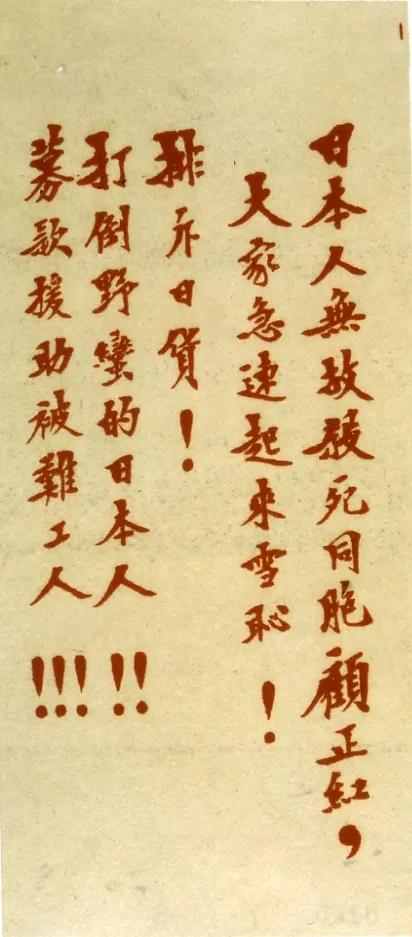 日本人無故殺死同胞顧正紅，
大家急速起來雪恥！
排斥日貨！
打倒野蠻的日本人！！
募款援助被難工人！！！